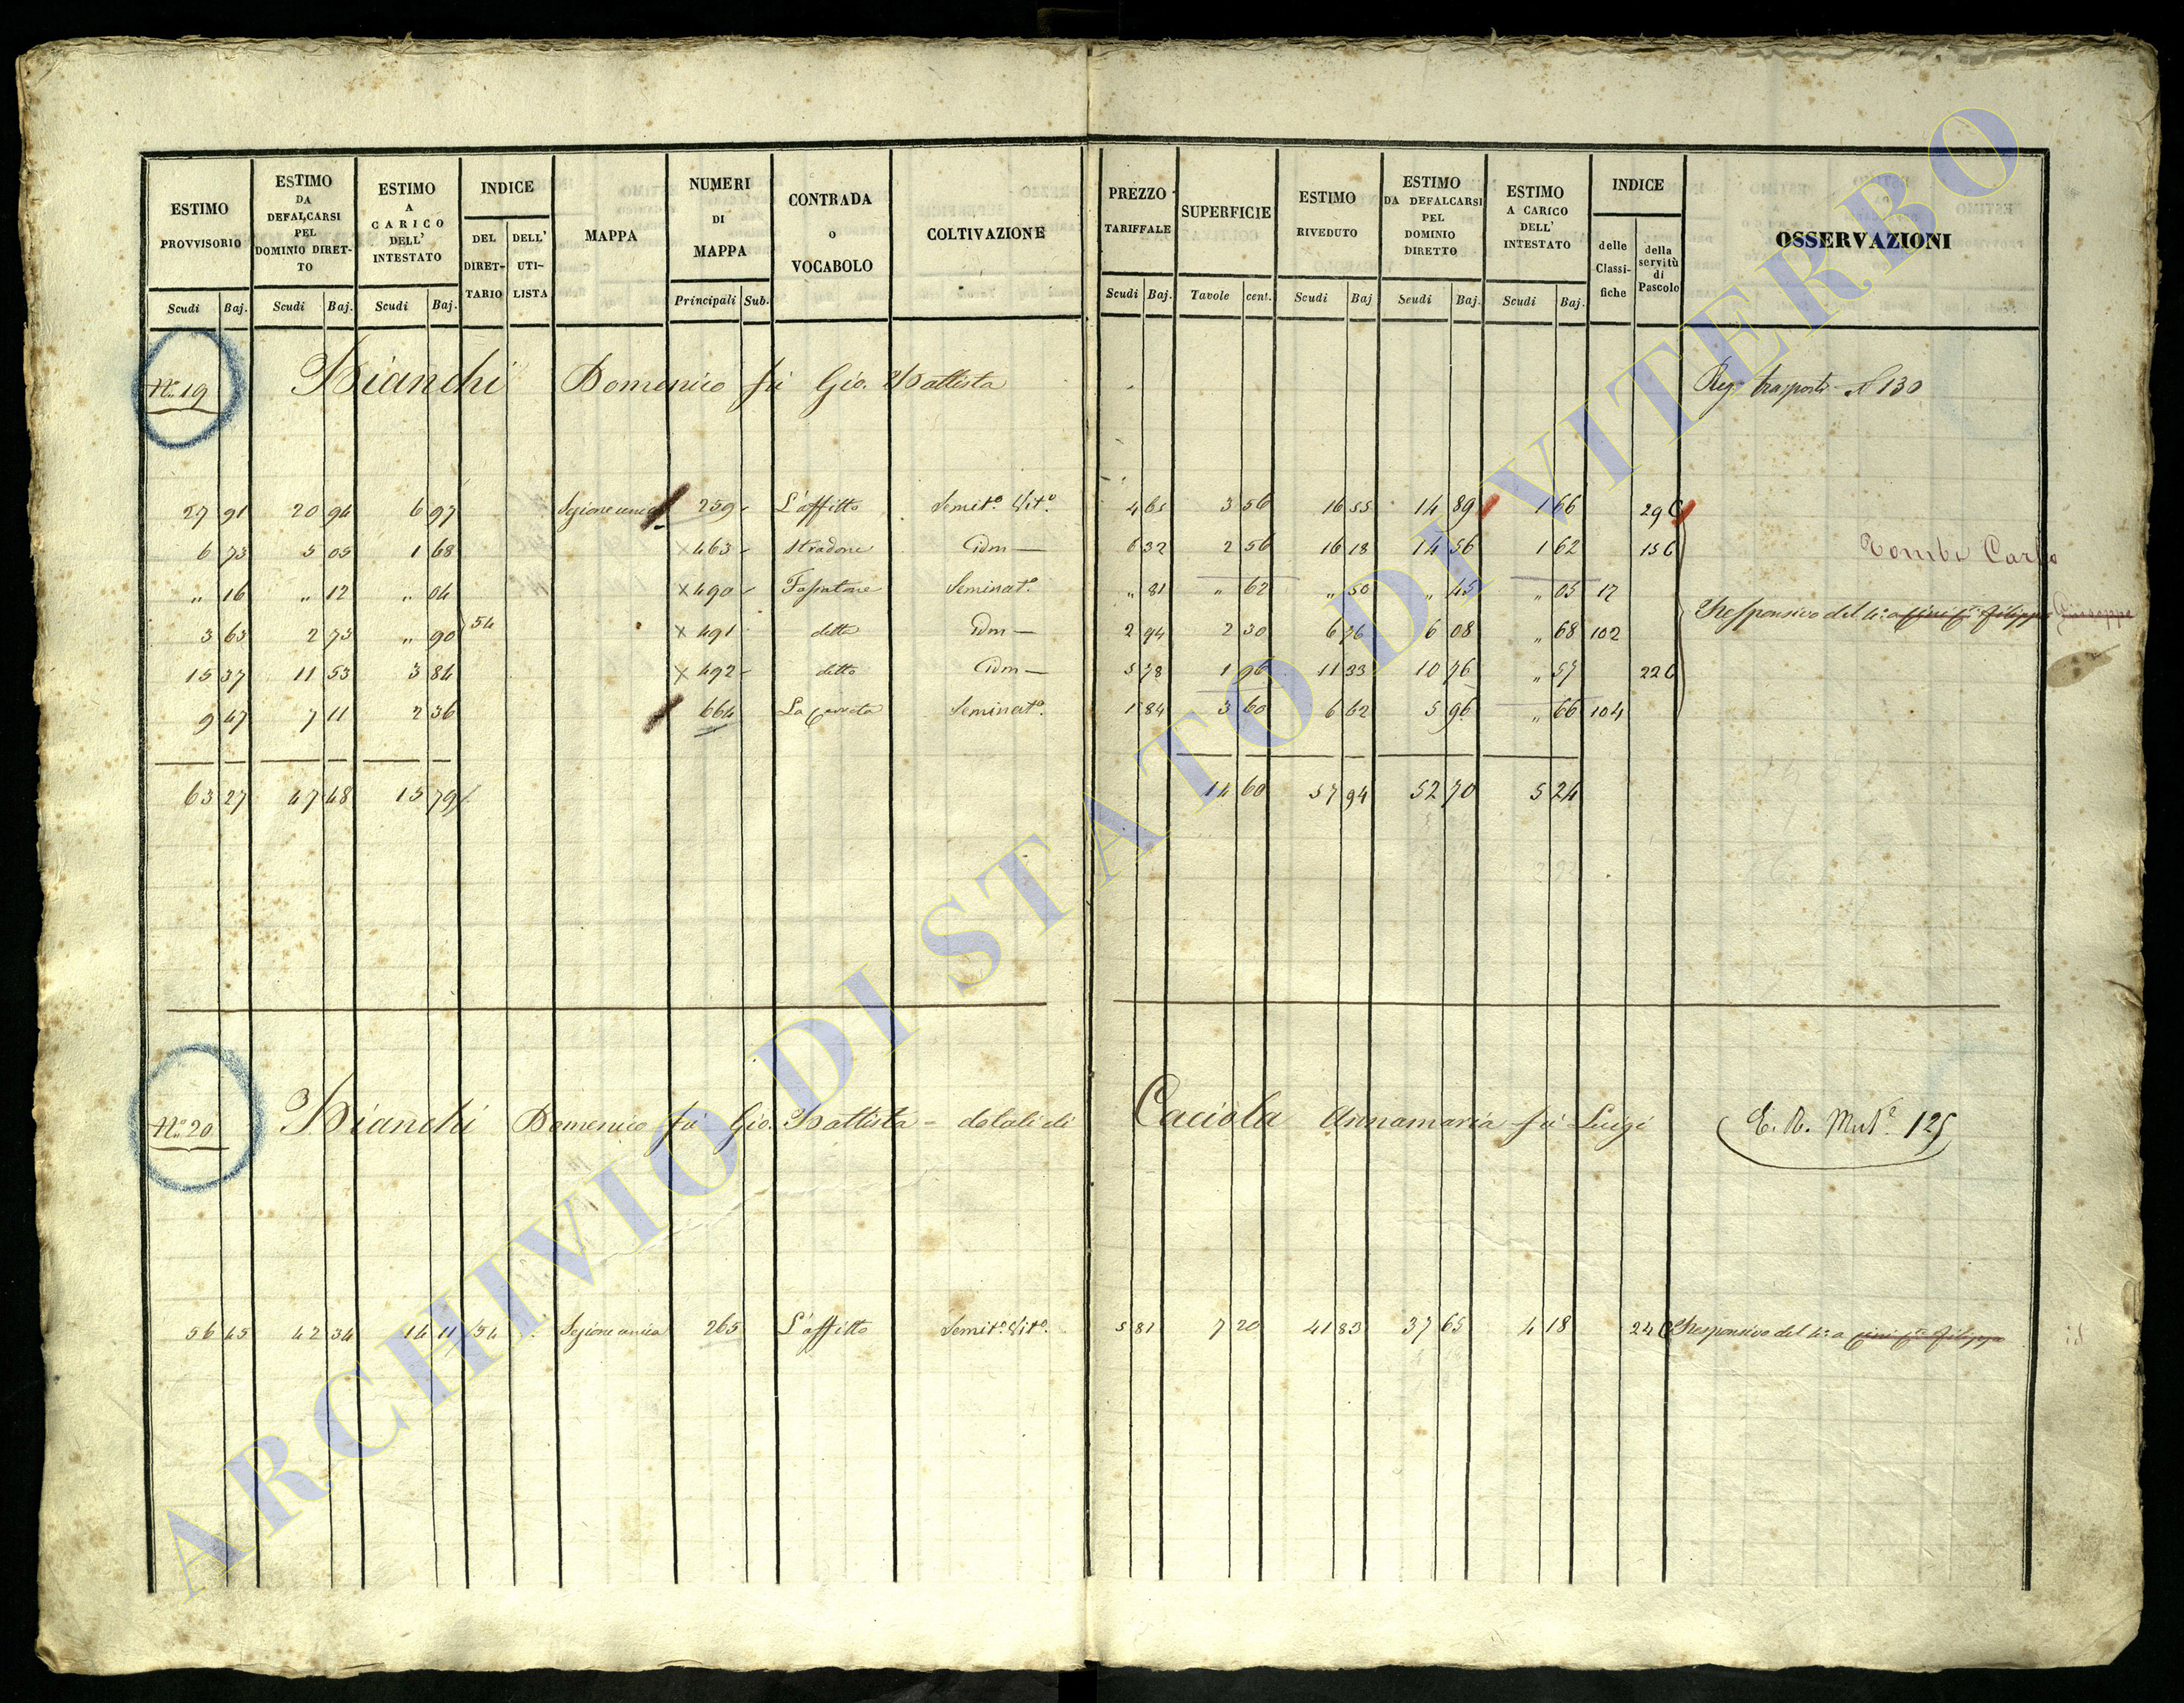 ESTIMO PROVVISORIO
Scudi Baj.
ESTIMO DA DEFALCARSI PEL DOMINIO DIRETTO
Scudi Baj.
ESTIMO A CARICO DELL' INTESTATO
Scudi Baj.
INDICE
DEL DIRETTARIO
DELL' UTILISTA
MAPPA
NUMERI DI MAPPA
Principali Sub.
CONTRADA o VOCABOLO
COLTIVAZIONE
PREZZO TARIFFALE
Scudi Baj.
SUPERFICIE
Tavole cent.
ESTIMO RIVEDUTO
Scudi Baj
ESTIMO DA DEFALCARSI PEL DOMINIO DIRETTO
Scudi Baj.
ESTIMO A CARICO DELL' INTESTATO
Scudi Baj.
INDICE
delle Classifiche
della servitù di Pascolo
OSSERVAZIONI
N.º 19 Bianchi Domenico fù Gio. Battista Reg. trasporti N 130
27 91 20 94 6 97 Sezione unica 259 L'affitto Semit.º Vit.º 4 65 3 56 16 55 14 89 1 66 29 C
6 73 5 05 1 68 × 463 Stradone Idm — 6 32 2 56 16 18 14 56 1 62 15 C Carlo
„ 16 „ 12 „ 04 × 490 Seminat.º „ 81 „ 62 „ 50 „ 45 „ 05 17
3 63 2 73 „ 90 54 × 491 detto Idm — 2 94 2 30 6 76 6 08 „ 68 102 Responsivo del 4.º a Filippo Giuseppe
15 37 11 53 3 84 × 492 detto Idm — 5 78 1 96 11 33 10 76 „ 57 22 C
9 47 7 11 2 36 664 Seminat.º 1 84 3 60 6 62 5 96 „ 66 104
63 27 47 48 15 79 14 60 57 94 52 70 5 24
N.º 20 Bianchi Domenico fù Gio. Battista = dotali di Caciola Annamaria fù Luigi
56 45 42 34 14 11 54 Sezione unica 265 L'affitto Semit.º Vit.º 5 81 7 20 41 83 37 65 4 18 24 C Responsivo del 4.º a Filippo
ARCHIVIO DI STATO DI VITERBO